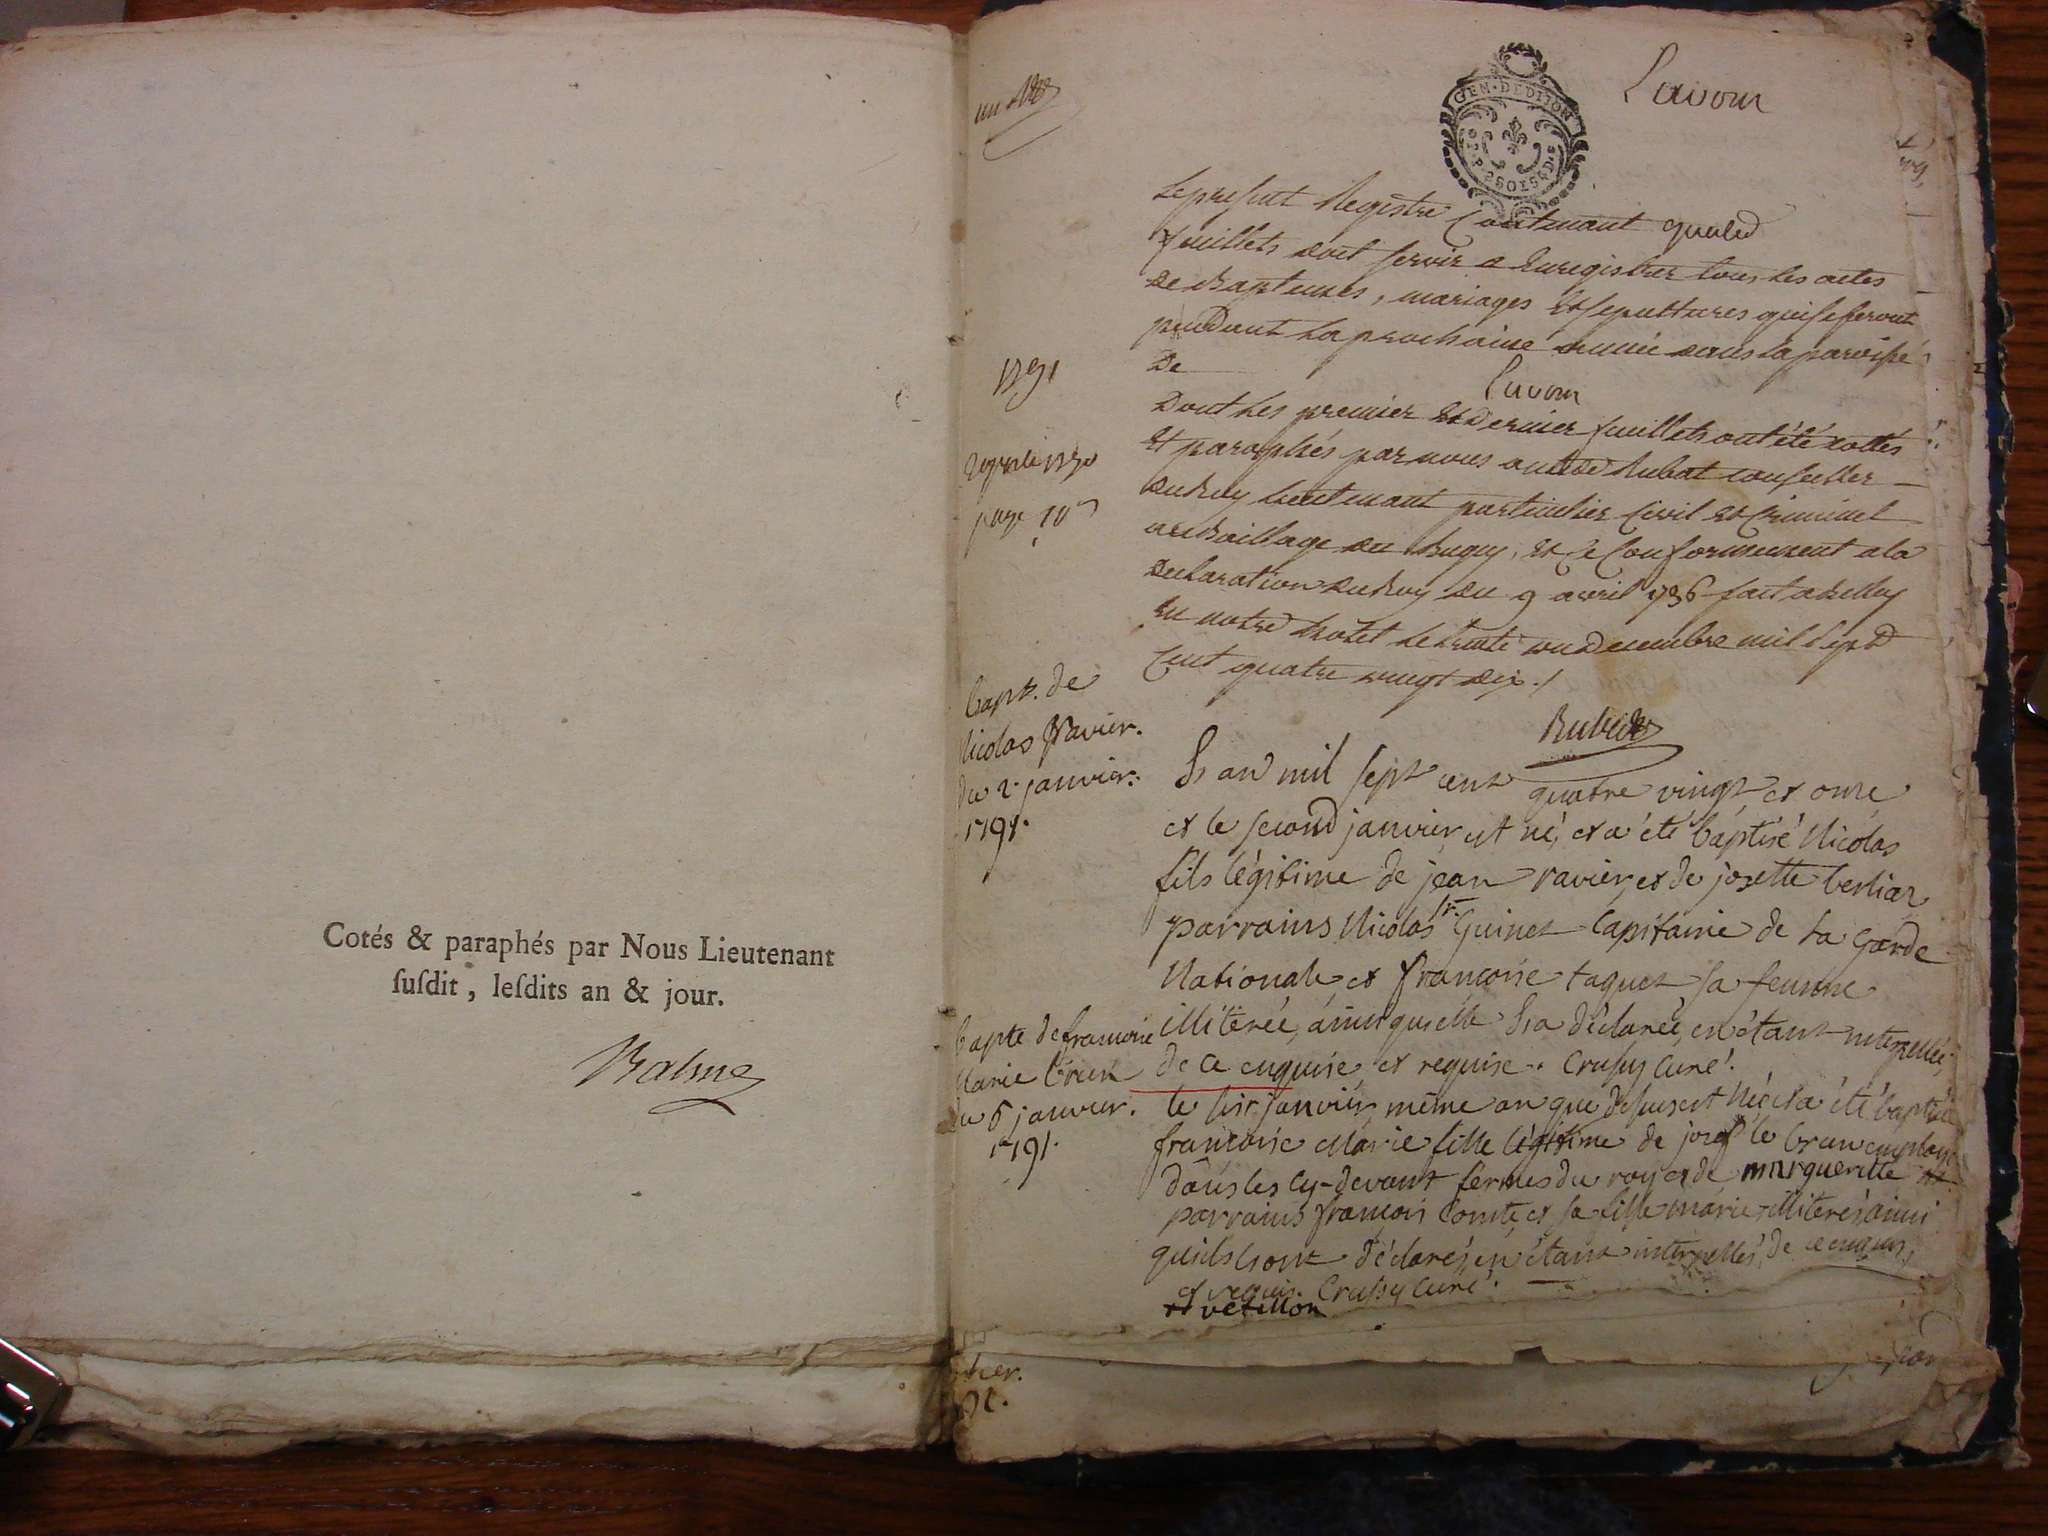 Cotés & paraphés par Nous Lieutenant
ſuſdit, leſdits an & jour.
Balme
GEN. DE DIJON
Lavour
Le present Registre Contenant
feuillets doit servir a Enregistrer tous les actes
de Baptemes, mariages Et sepultures qui se feront
pendant la prochaine année dans la paroisse
De
Lavour
Dont les premier Et Dernier feuillets ont été cottés
Et paraphés par nous Rubat conseiller
du Roy Lieutenant particulier Civil Et Criminel
au Baillage du Bugey, Et Ce Conformement a la
Declaration du Roy du 9 avril 1736 fait a Belley
En notre hotel le trente un Decembre mil sept
Cent quatre vingt dix ./
Rubat
1791
page 10
bapt. de
Nicolas Ravier.
du 2 janvier.
1791.
L'an mil sept cent quatre vingt et onze
et le second janvier est né, et a été baptisé Nicolas
fils légitime de jean ravier, et de josette berliaz
parrains Nicolas Guinet Capitaine de la Garde
Nationale et francoise taquet sa femme
illiterée, ainsi qu'elle l'a déclaré, en étant interpellée,
de ce enquise et requise. Crussy Curé.
bapte de francoise
Marie brun
du 6 janvier.
1791.
le six janvier même an que dessus est Née et a été baptisée
francoise Marie fille légitime de josef le brun employé
dans les cy-devant fermes du roy et de marguerite
parrains francois Comte, et sa fille marie illiterés ainsi
qu'ils l'ont déclaré, en étant interpellés, de ce enquis,
et requis. Crussy Curé.
vetillon